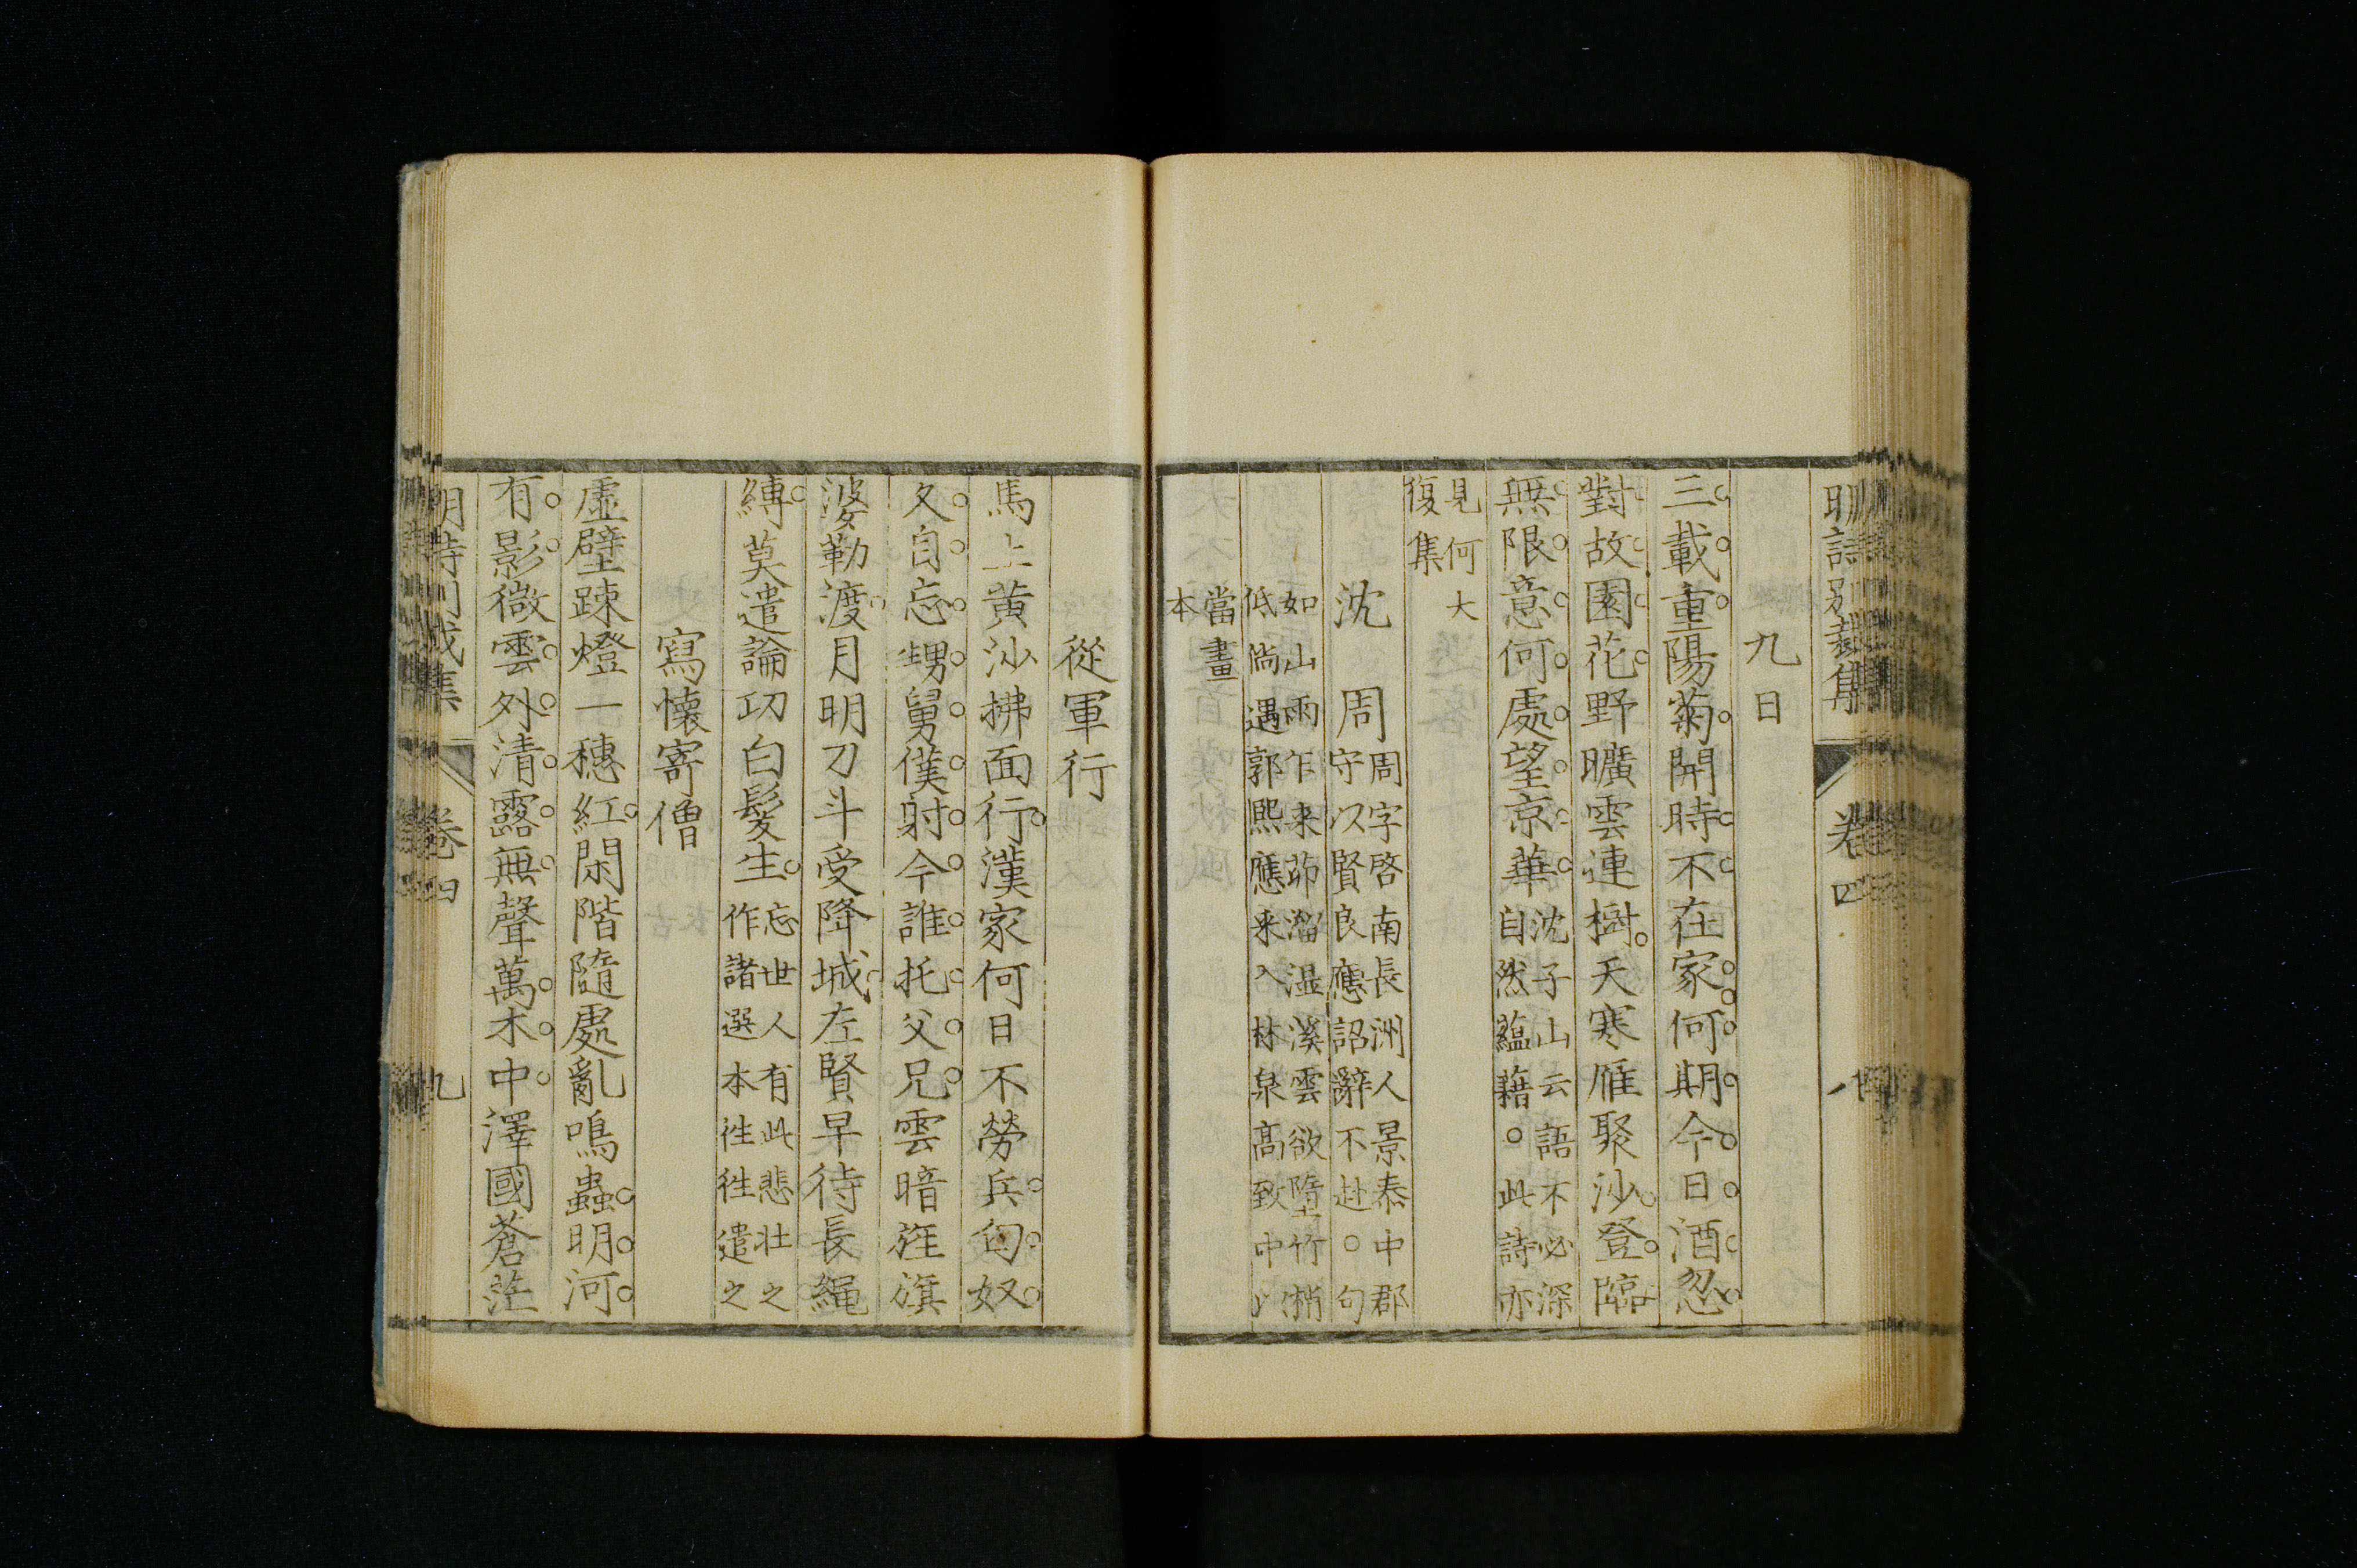 明詩別裁集 卷四 八
九日
三載重陽菊開時不在家何期今日酒忽
對故園花野曠雲連樹天寒雁聚沙登臨
無限意何處望京華
沈子山云語不必深
自然蘊藉。此詩亦
見何大
復集
沈周
周字啓南長洲人景泰中郡
守以賢良應詔辭不赴。句
如山雨乍来茆溜湿溪雲欲墮竹梢
低倘遇郭熙應来入林泉高致中以
當畫
本
從軍行
馬上黃沙拂面行漢家何日不勞兵匈奴
久自忘甥舅僕射今誰托父兄雲暗旌旗
婆勒渡月明刀斗受降城左賢早待長繩
縛莫遣論功白髮生
忘世人有此悲壯之
作諸選本往往遣之
寫懷寄僧
虛壁踈燈一穗紅閑階隨處亂鳴蟲明河
有影微雲外清露無聲萬木中澤國蒼茫
明詩別裁集 卷四 九